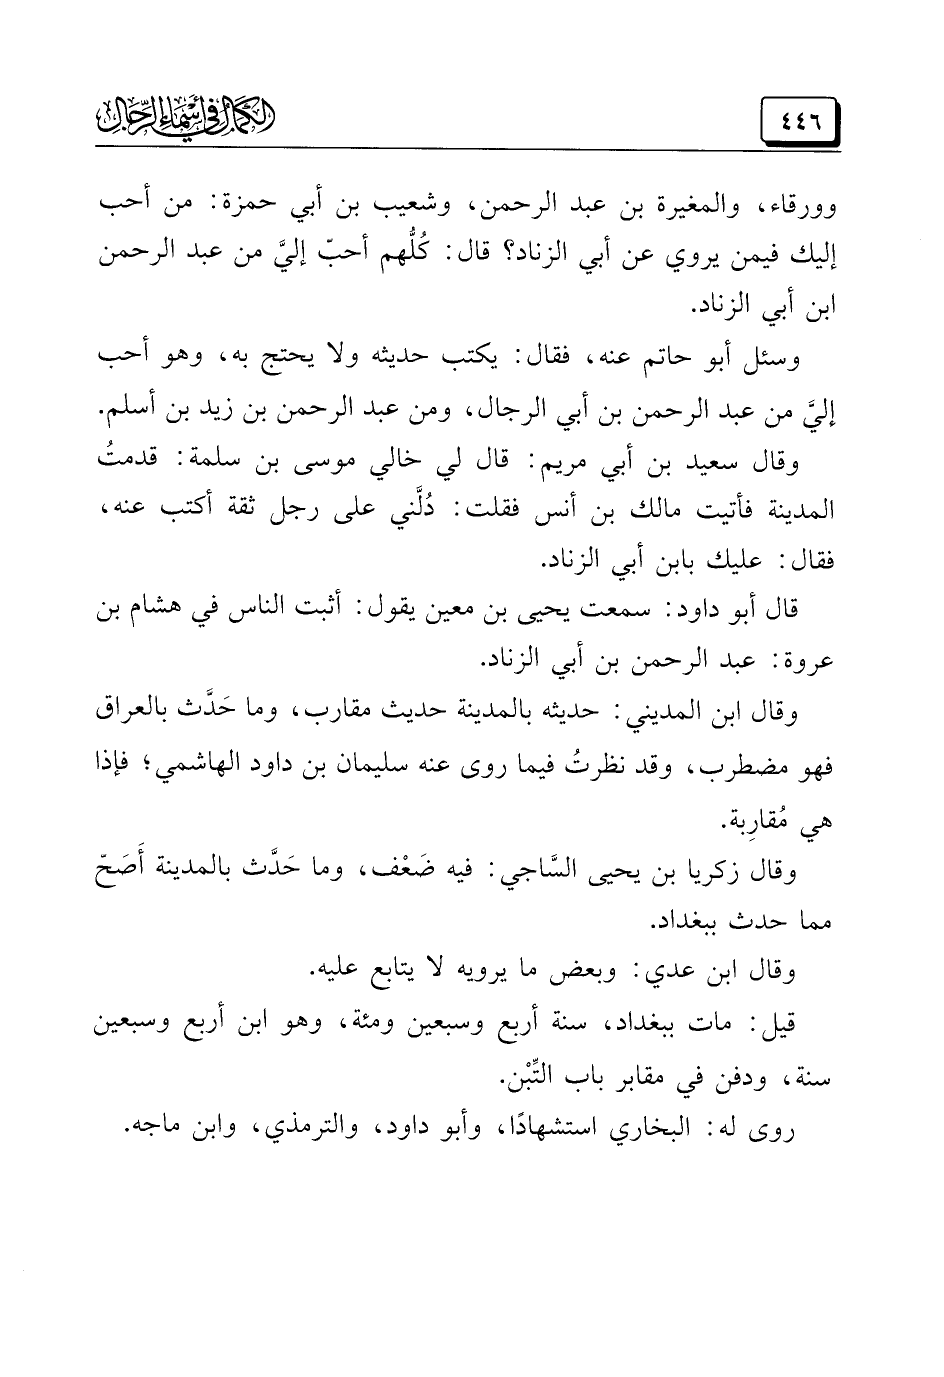 ٤٤٦
الكمال في أسماء الرجال
وورقاء، والمغيرة بن عبد الرحمن، وشعيب بن أبي حمزة: من أحب
إليك فيمن يروي عن أبي الزناد؟ قال: كُلُّهم أحبّ إليَّ من عبد الرحمن
ابن أبي الزناد.
وسئل أبو حاتم عنه، فقال: يكتب حديثه ولا يحتج به، وهو أحب
إليَّ من عبد الرحمن بن أبي الرجال، ومن عبد الرحمن بن زيد بن أسلم.
وقال سعيد بن أبي مريم: قال لي خالي موسى بن سلمة: قدمتُ
المدينة فأتيت مالك بن أنس فقلت: دُلَّني على رجل ثقة أكتب عنه،
فقال: عليك بابن أبي الزناد.
قال أبو داود: سمعت يحيى بن معين يقول: أثبت الناس في هشام بن
عروة: عبد الرحمن بن أبي الزناد.
وقال ابن المديني: حديثه بالمدينة حديث مقارب، وما حَدَّث بالعراق
فهو مضطرب، وقد نظرتُ فيما روى عنه سليمان بن داود الهاشمي؛ فإذا
هي مُقارِبة.
وقال زكريا بن يحيى السَّاجي: فيه ضَعْف، وما حَدَّث بالمدينة أَصَحّ
مما حدث ببغداد.
وقال ابن عدي: وبعض ما يرويه لا يتابع عليه.
قيل: مات ببغداد، سنة أربع وسبعين ومئة، وهو ابن أربع وسبعين
سنة، ودفن في مقابر باب التِّبْن.
روى له: البخاري استشهادًا، وأبو داود، والترمذي، وابن ماجه.